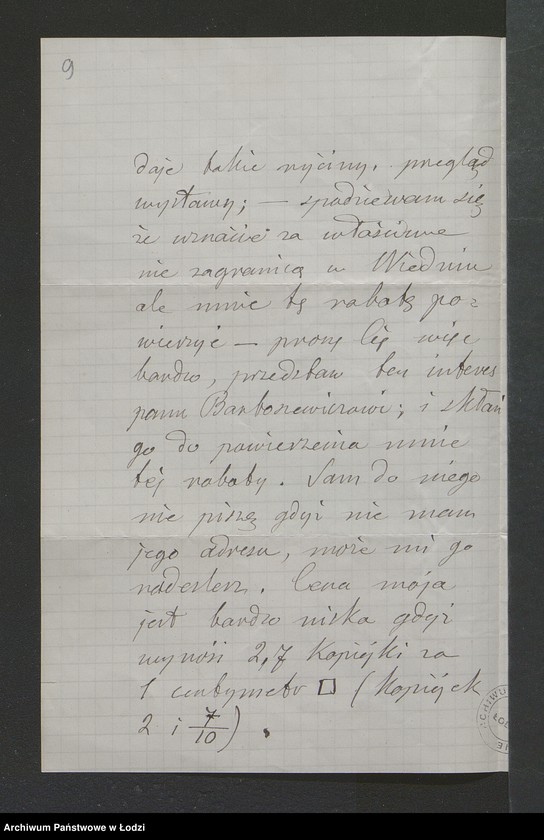 9
daje takie ryciny. przegląd
wystawy; — spodziewam się
że uznacie za właściwe
nie zagranicą w Wiedniu
ale mnie tę robotę po=
wierzyć — proszę Cię więc
bardzo, przedstaw ten interes
panu Bartoszewiczowi; i skłoń
go do powierzenia mnie
tej roboty. Sam do niego
nie piszę gdyż nie mam
jego adresu, może mi go
nadeślesz. Cena moja
jest bardzo niska gdyż
wynosi 2,7 Kopiejki za
1 centymetr □ (Kopiejek
2 i 7/10).
ARCHIWU
Archiwum Państwowe w Łodzi